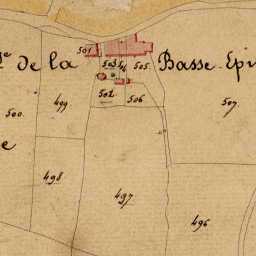 501
de la
503
505
Basse Epi
499
502
506
507
500
e
498
497
496